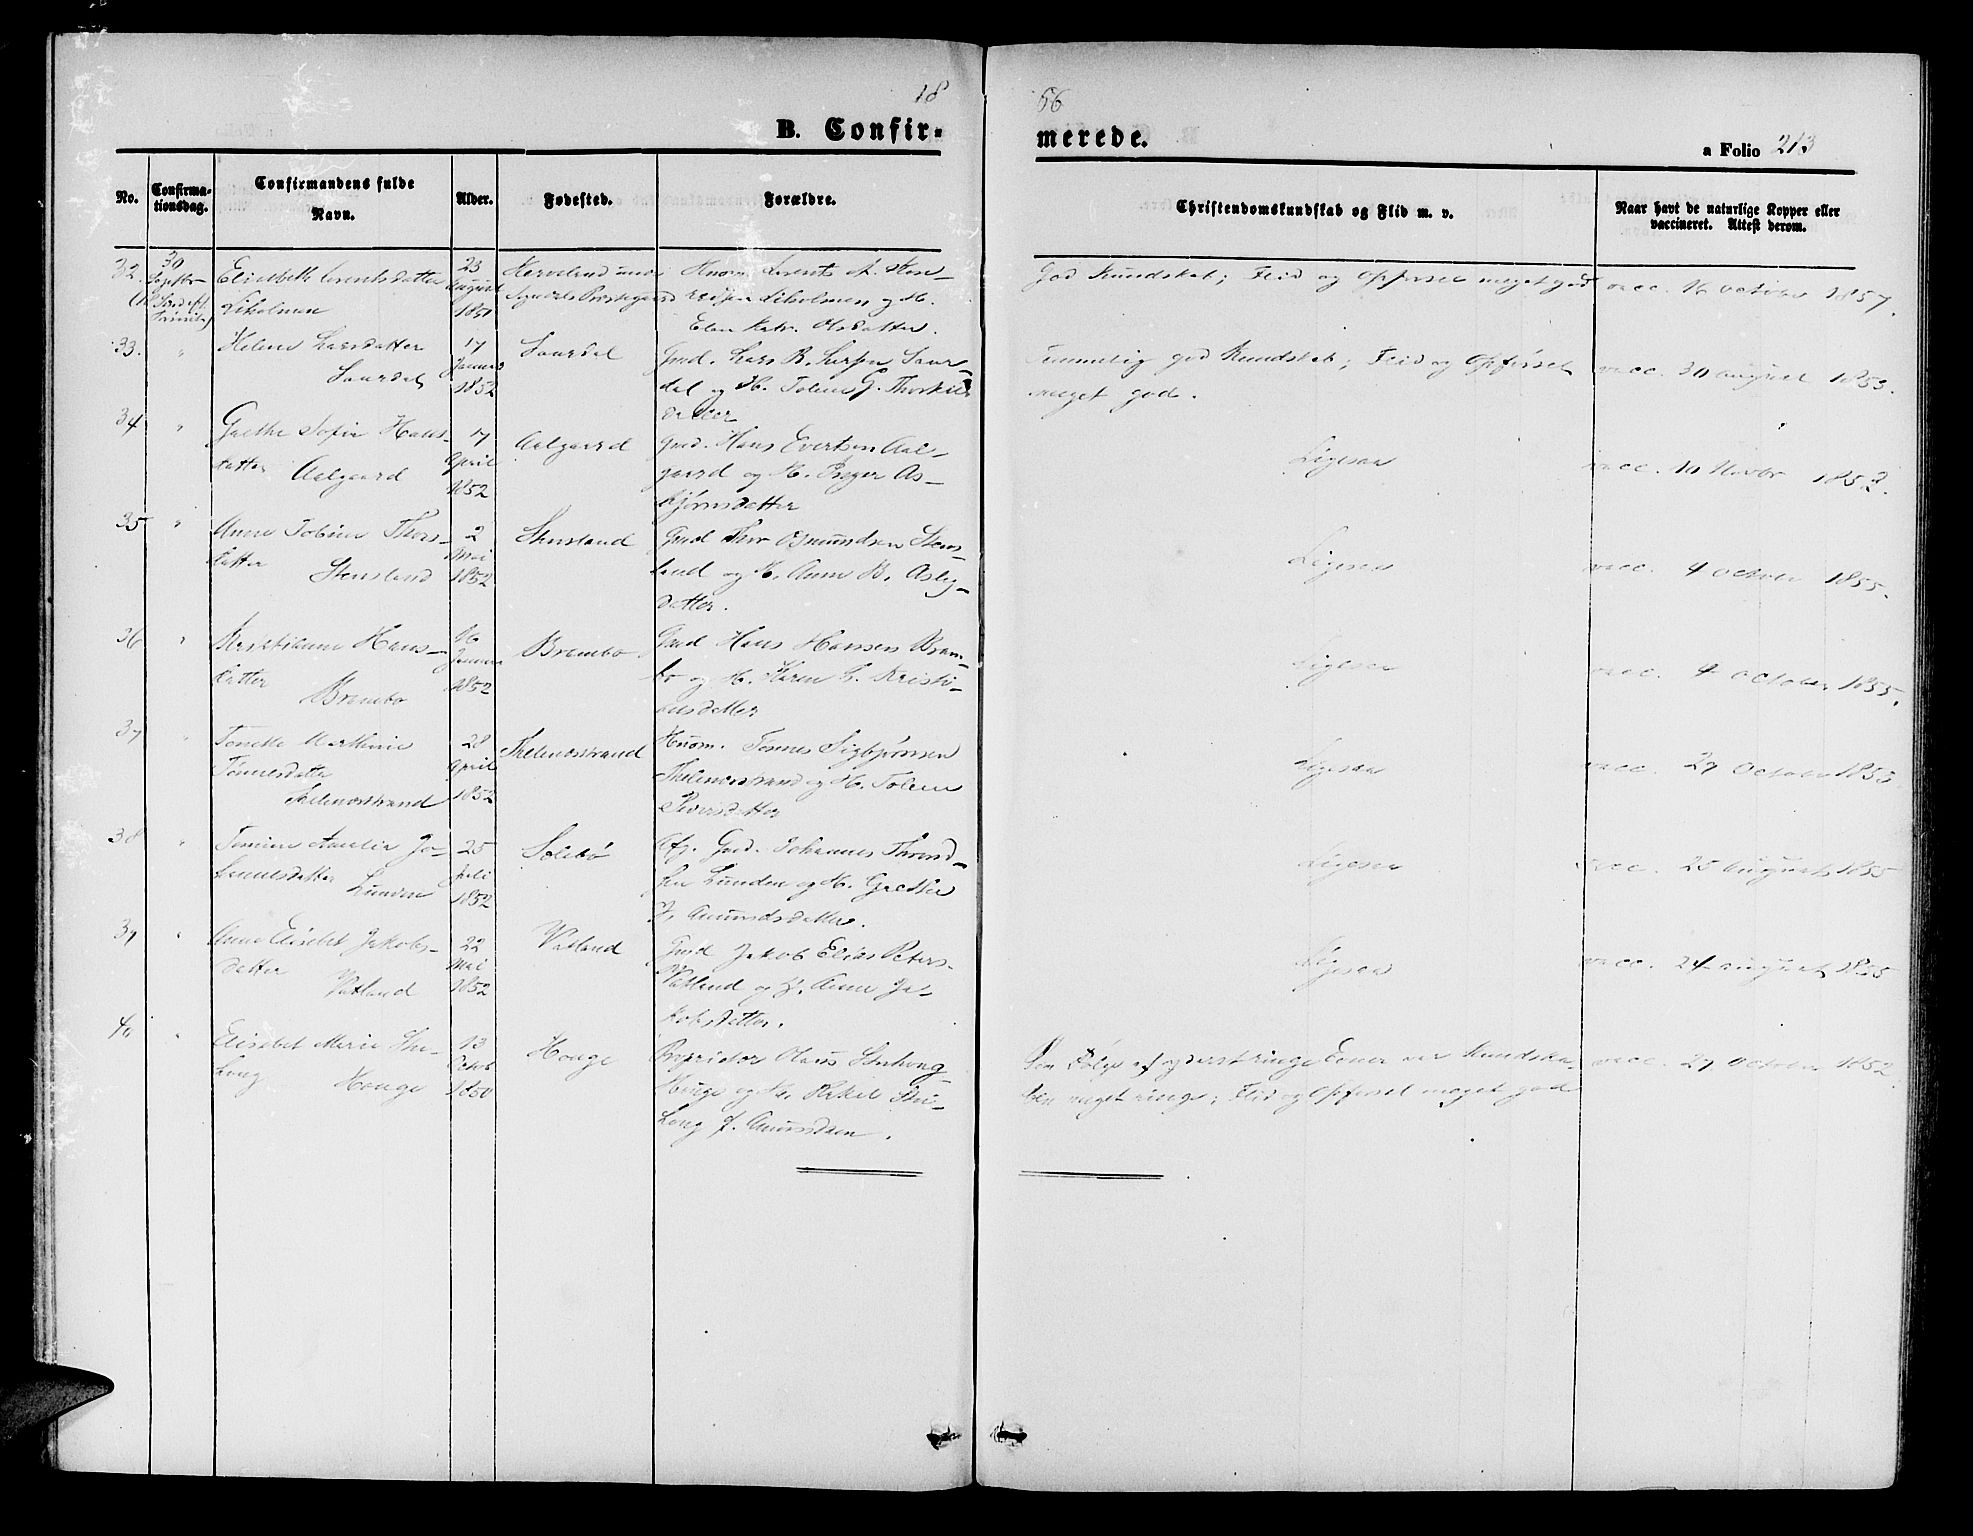 18
66
B. Confir-
merede.
a Folio 213
No.
Confirma-
tionsdag.
Confirmandens fulde
Navn.
Alder.
Fødested.
Forældre.
Christendomskundskab og Flid m. v.
Naar havt de naturlige Kopper eller
vaccineret. Attest derom.
32.
30
Elisabeth Lorentsdatter
23
August
1851
God Kundskab; Flid og Opførsel meget god
vacc. 16 october 1857.
Elen Katr. Olsdatter.
33.
"
Helene Larsdatter
Saurdal
17
Januar
1852
Saurdal
Gmd. Lars B. Saur-
dal og H. Tolene G. Thorkils
datter
Temmelig god Kundskab; Flid og Opførsel
meget god.
vacc. 30 august 1853.
34
"
Grethe Sofie Hans-
datter Aalgaard
17
April
1852
Aalgaard
Gmd. Hans Evertsen Aal-
gaard og H. Inger As-
bjørnsdatter
Ligesaa
vacc. 10 Novbr 1853.
35
"
Anne Tobine Thors-
datter
Stensland
2
Mai
1852
Stensland
Gmd Thor Osmundsen Stens-
land og H. Anne B. Aslag-
datter.
Ligesaa
vacc. 4 october 1855.
36
"
Hans-
datter
Brambo
16
Januar
1852
Brambo
Gmd Hans Hansen Bram-
bo og H. Karen Kristi-
ansdatter
Ligesaa
vacc. 4 october 1855.
37
"
Tonette Marthine
Tønnesdatter
28
April
1852
Huusm. Tønnes Sigbjørnsen
og H. Tolene
Iversdatter
Ligesaa
vacc. 27 October 1853
38
"
Tomine Amalie Jo-
hannesdatter Lunden
25
Juli
1852
Solebø
Afg. Gmd. Johannes Thord-
sen Lunden og H. Grethe
J. Amundsdatter.
Ligesaa
vacc. 25 august 1855
39
"
Anne Elisebet Jakobs-
datter
Vatland
22
Mai
1852
Vatland
Gmd Jakob Elias Peters-
Vatland og H. Anne Ja-
kobsdatter.
Ligesaa
vacc. 24 august 1855
40
"
Elisebet Marie Stu-
houg Houge
13
Octob
1850
Houge
Proprietær Olaus Stuhoug
Houge og H. Rakel Stu-
houg f. Amundsen.
Som Følge af yderst ringe Evner var Kundska-
ben meget ringe; Flid og Opførsel meget god
vacc. 27 October 1852.